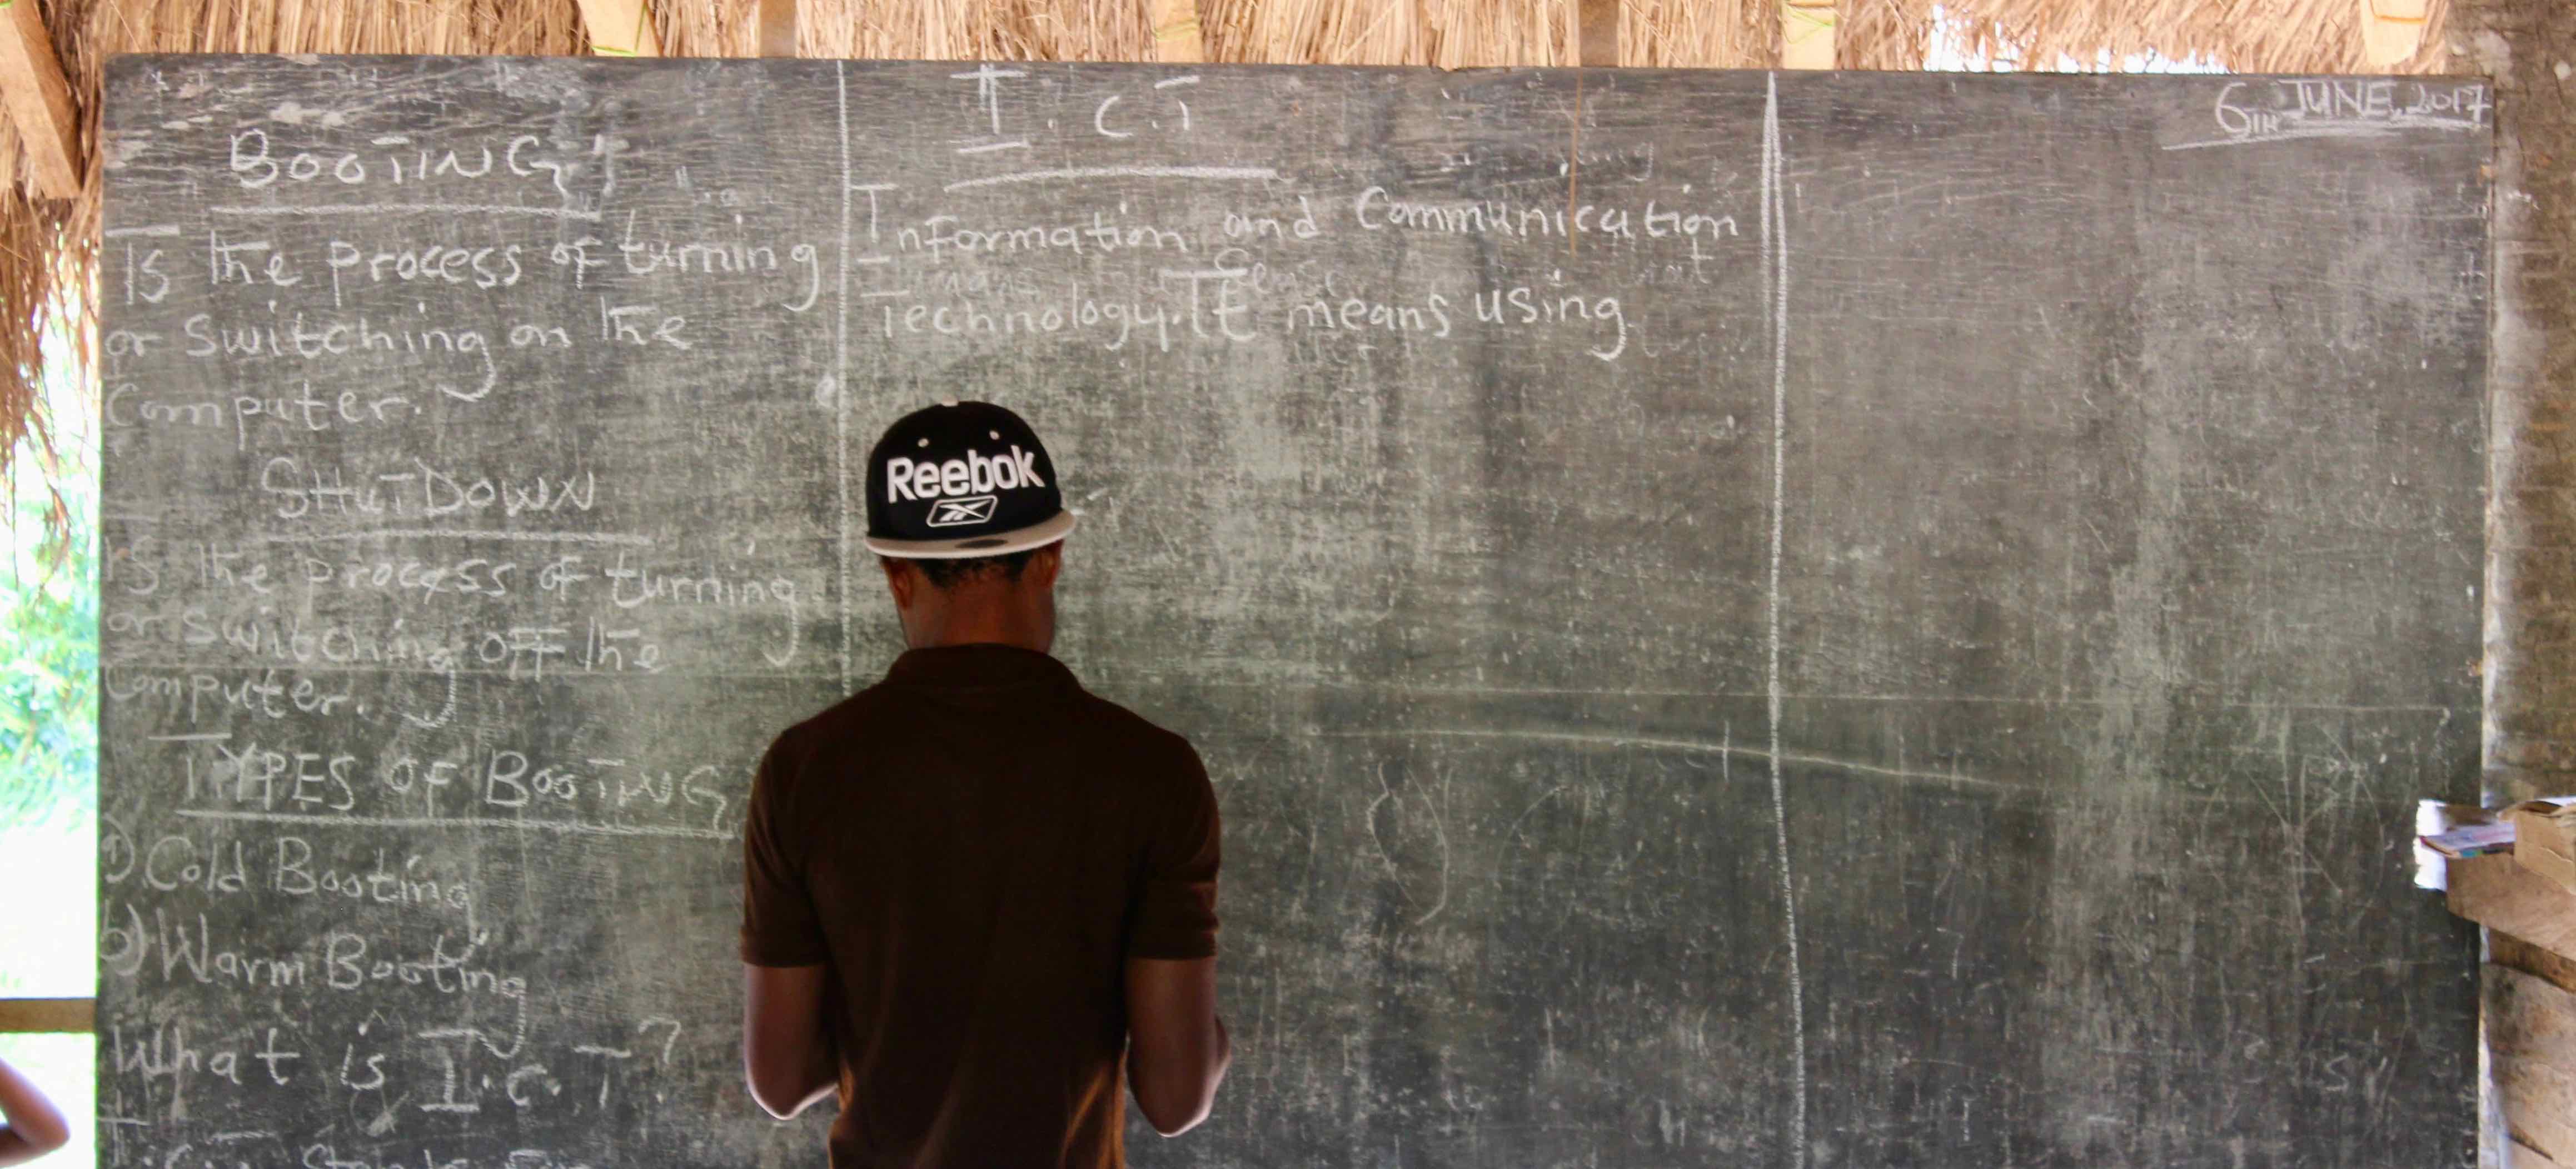 BOOTING
Is the process of turning
or switching on the
Computer.
SHUTDOWN
Is the process of turning
or switching off the
Computer.
TYPES OF BOOTING
a) Cold Booting
b) Warm Booting
What is I.C.T?
I.C.T
Information and Communication
Technology. It means using
6TH JUNE, 2017
Reebok